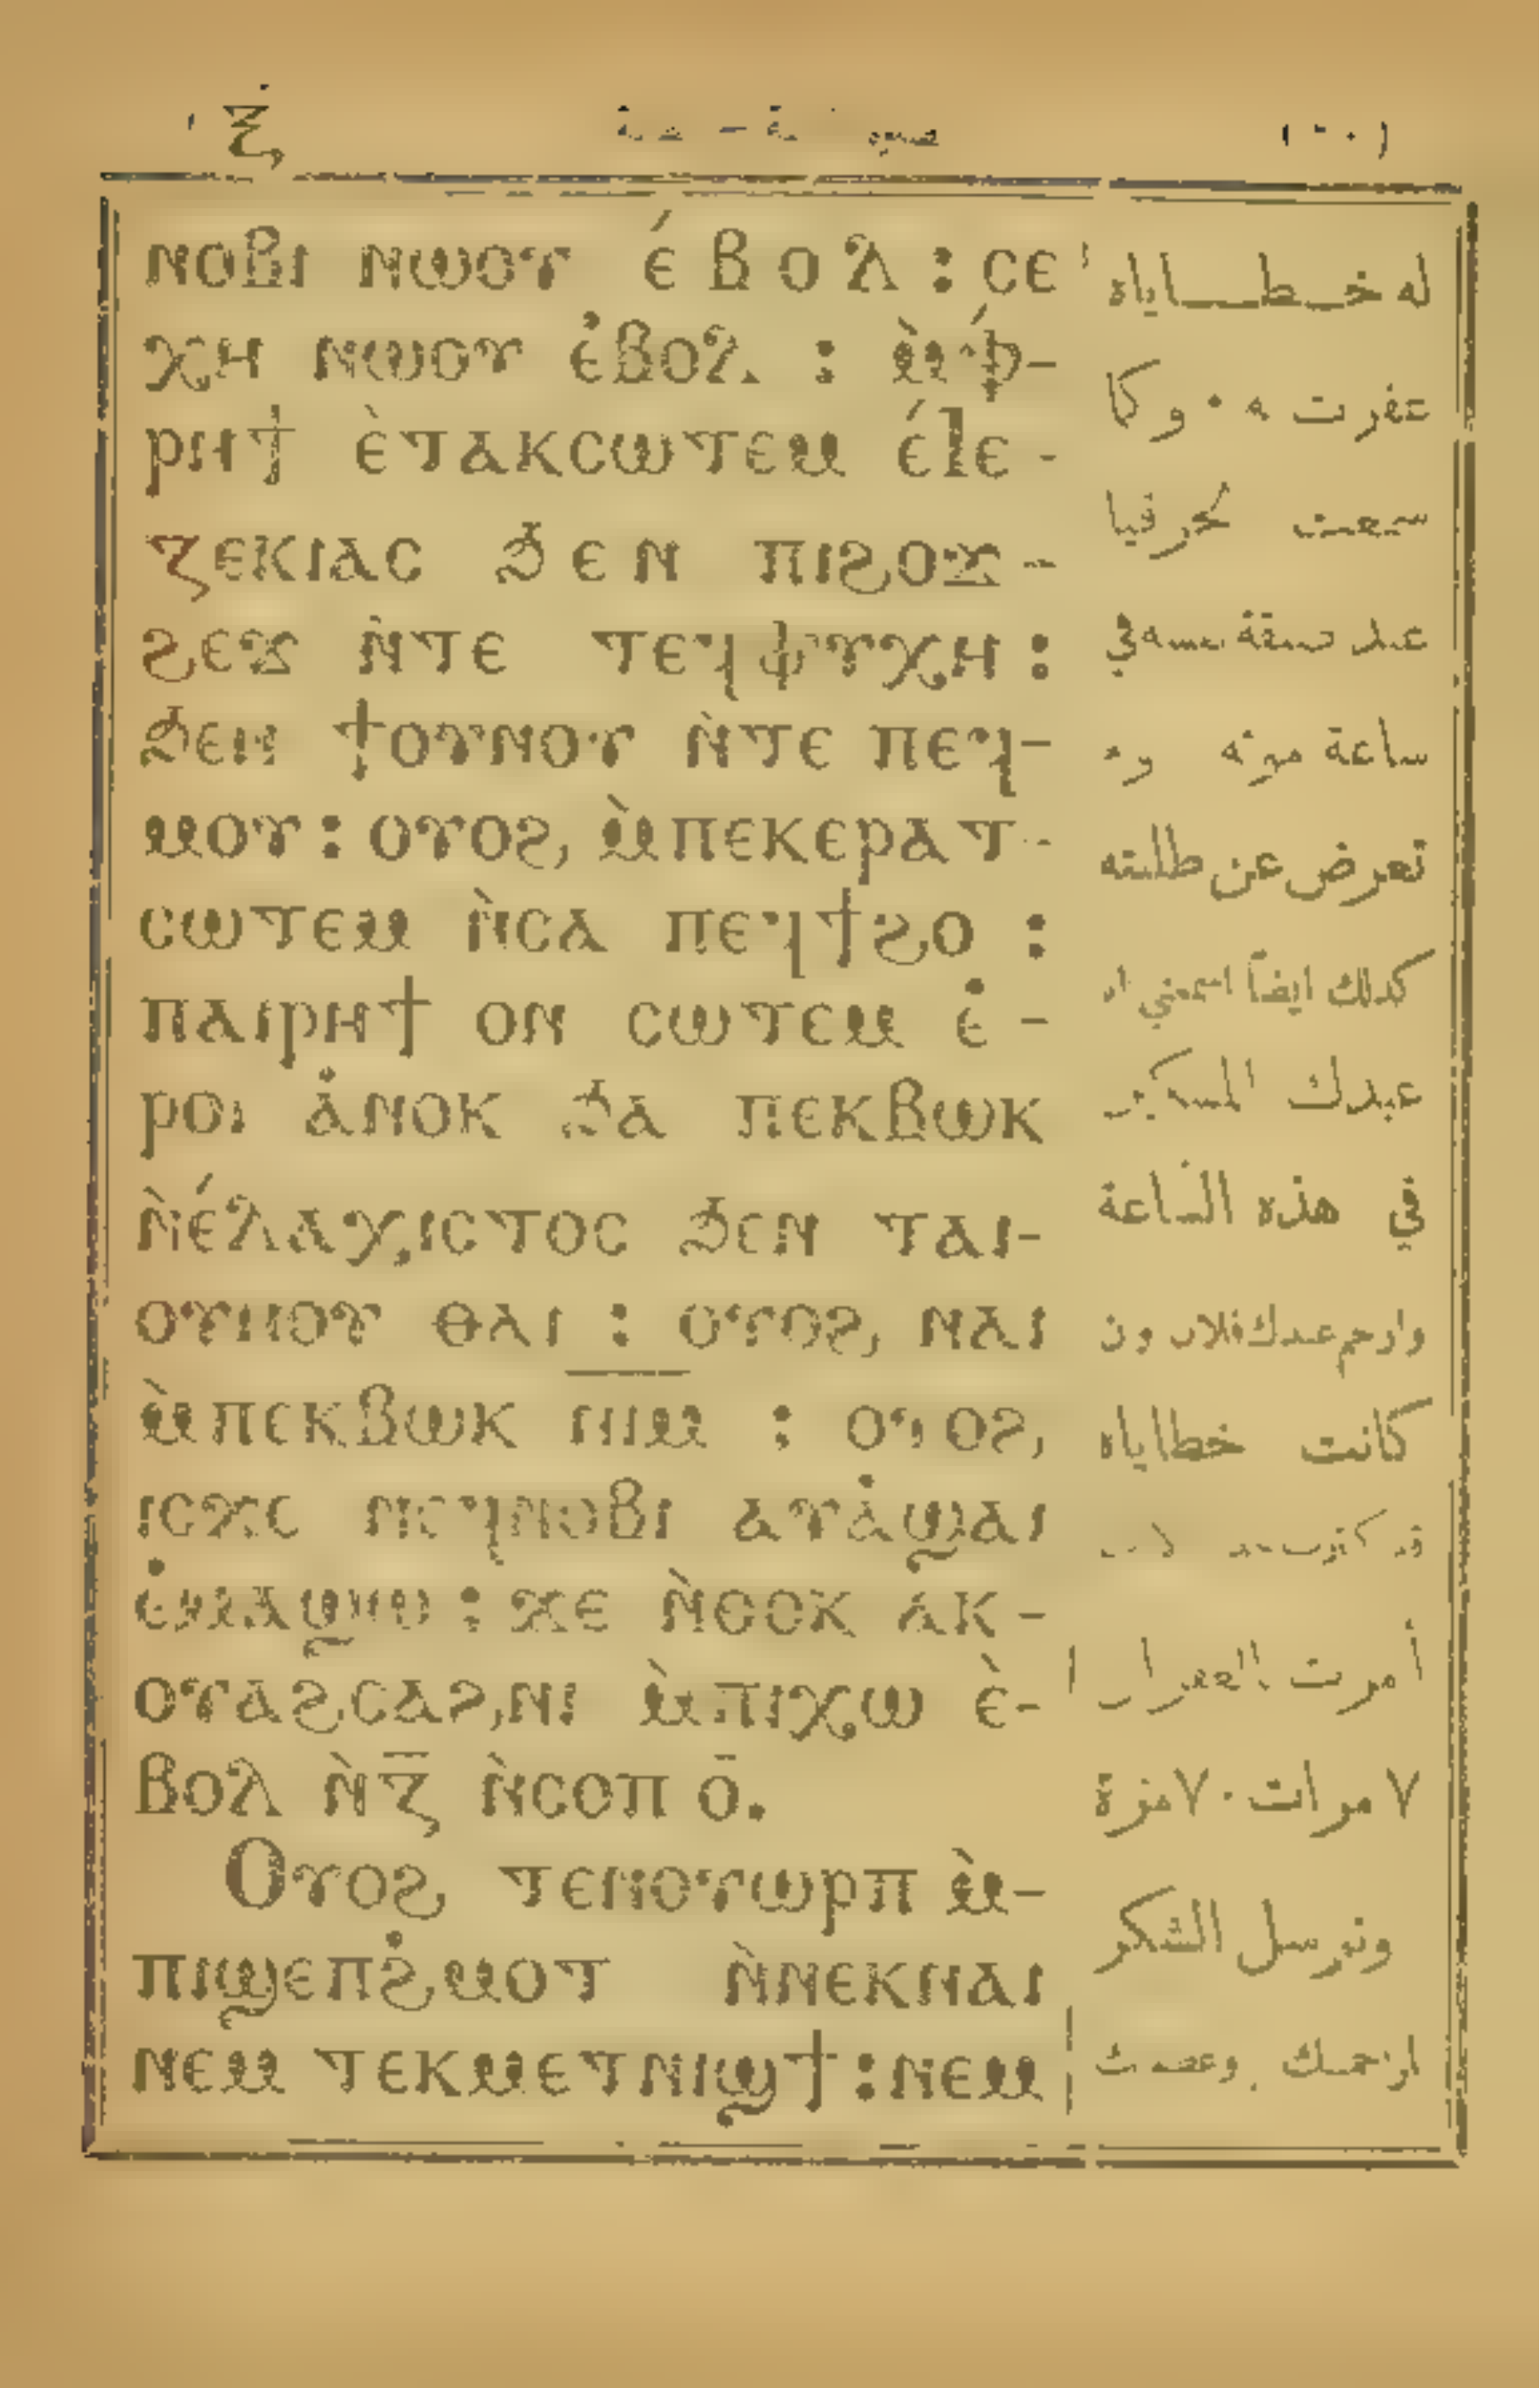 ⲝ̇
ⲛⲟⲃⲓ ⲛⲱⲟⲩ ⲉ́ⲃⲟⲗ : ⲥⲉ
ⲭⲏ ⲛⲱⲟⲩ ⲉ̇ⲃⲟⲗ : ⲙ̀ⲫ́-
ⲣⲏϯ ⲉ̀ⲧⲁⲕⲥⲱⲧⲉⲙ ⲉ́ⲓⲉ-
ⲍⲉⲕⲓⲁⲥ ϧⲉⲛ ⲡⲓϩⲟϫ-
ϩⲉϫ ⲛ̀ⲧⲉ ⲧⲉϥⲯⲩⲭⲏ :
ϧⲉⲛ ϯⲟⲩⲛⲟⲩ ⲛ̀ⲧⲉ ⲡⲉϥ-
ⲙⲟⲩ : ⲟⲩⲟϩ ⲙ̀ⲡⲉⲕⲉⲣⲁⲧ-
ⲥⲱⲧⲉⲙ ⲛ̀ⲥⲁ ⲡⲉϥϯϩⲟ :
ⲡⲁⲓⲣⲏϯ ⲟⲛ ⲥⲱⲧⲉⲙ ⲉ̇-
ⲣⲟⲓ ⲁ̇ⲛⲟⲕ ϧⲁ ⲡⲉⲕⲃⲱⲕ
ⲛ̀ⲉ́ⲗⲁⲭⲓⲥⲧⲟⲥ ϧⲉⲛ ⲧⲁⲓ-
ⲟⲩⲛⲟⲩ ⲑⲁⲓ : ⲟⲩⲟϩ ⲛⲁⲓ
ⲙ̀ⲡⲉⲕⲃⲱⲕ ⲛⲓⲙ : ⲟⲩⲟϩ
ⲓⲥϫⲉ ⲛⲉϥⲛⲟⲃⲓ ⲁⲩⲁ̇ϣⲁⲓ
ⲉ̇ⲙⲁϣⲱ : ϫⲉ ⲛ̀ⲑⲟⲕ ⲁ̀ⲕ-
ⲟⲩⲁϩⲥⲁϩⲛⲓ ⲙ̀ⲡⲓⲭⲱ ⲉ̀-
ⲃⲟⲗ ⲛ̀ⲍ̅ ⲛ̀ⲥⲟⲡ ⲟ̅.
Ⲟⲩⲟϩ ⲧⲉⲛⲟⲩⲱⲣⲡ ⲙ̀-
ⲡⲓϣⲉⲡϩ̇ⲙⲟⲧ ⲛ̀ⲛⲉⲕⲛⲁⲓ
ⲛⲉⲙ ⲧⲉⲕⲙⲉⲧⲛⲓϣϯ : ⲛⲉⲙ
له خـطـــاياه
غفرت له · وكا
سمعت لحزقيا
عند ضيقة نفسه في
ساعة موته
تعرض عن طلبته
كذلك ايضاً اسمعني انا
عبدك المسكين
في هذه الساعة
وارحم عبدك فلان وان
كانت خطاياه
أمرت بالغفران
٧ مرات ٧٠ مرة
ونرسل الشكر
لرحمتك وعظمتك